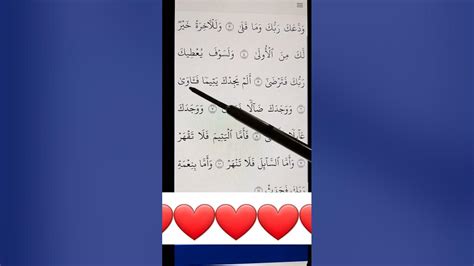 وَدَّعَكَ رَبُّكَ وَمَا قَلَىٰ وَلَلْآخِرَةُ خَيْرٌ
لَكَ مِنَ الْأُولَىٰ وَلَسَوْفَ يُعْطِيكَ
رَبُّكَ فَتَرْضَىٰ أَلَمْ يَجِدْكَ يَتِيمًا فَـَٔاوَىٰ
وَوَجَدَكَ ضَآلًّا وَوَجَدَكَ
عَآئِلًا فَأَمَّا الْيَتِيمَ فَلَا تَقْهَرْ
وَأَمَّا السَّآئِلَ فَلَا تَنْهَرْ وَأَمَّا بِنِعْمَةِ
رَبِّكَ فَحَدِّثْ